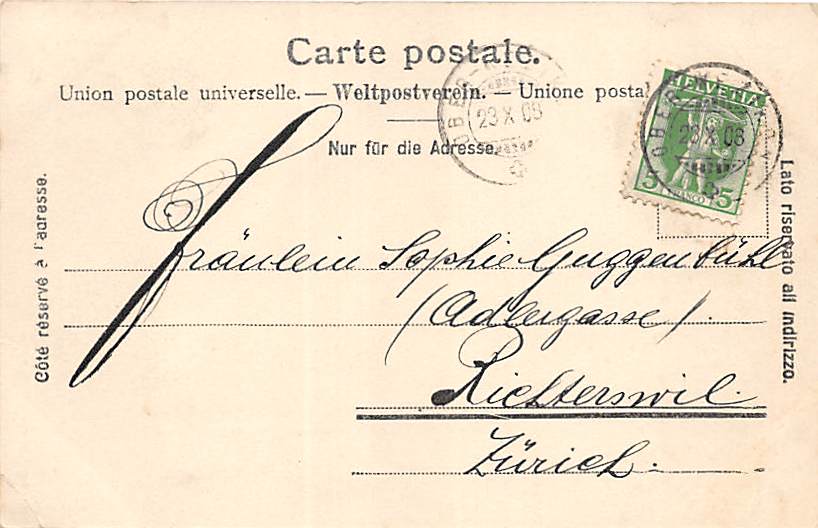 Carte postale.
Union postale universelle. — Weltpostverein. — Unione posta
Nur für die Adresse.
Côté réservé à l'adresse.
Lato riservato all indirizzo.
HELVETIA
5 5
FRANCO
23 X 08
23 X 08
Fräulein Sophie Guggenbühl
(Adlergasse)
Richterswil.
Zürich.